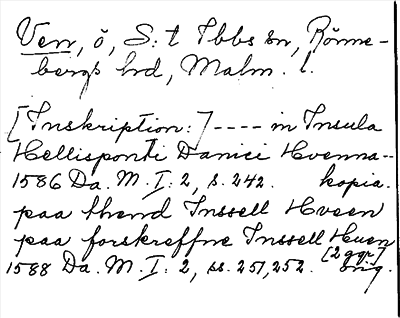 Ven, ö, S:t Ibbs sn, Rönne-
bergs hrd, Malm. l.
[Inskription:] ---- in Insula
Hellisponti Danici Hvenna--
1586 Da. M. I: 2, s. 242. kopia.
paa thend Inssell Hveen
paa forskreffne Inssell Huen
[2 ggr]
1588 Da. M. I: 2, ss. 251, 252. orig.